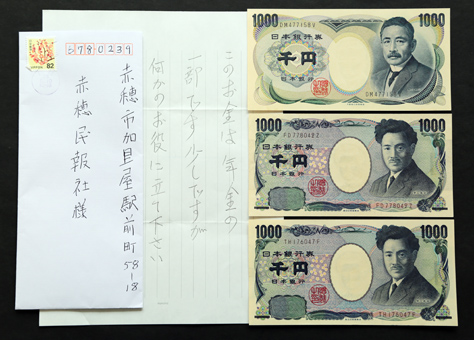 6780239
赤穂市加里屋駅前町58-18
赤穂民報社様
82
このお金は年金の
一部です少しですが
何かのお役に立て下さい
1000
DM477158V
日本銀行券
千円
1000
日本銀行券
FD778048Z
千円
FD778048Z
1000
日本銀行券
TH176047F
千円
TH176047F